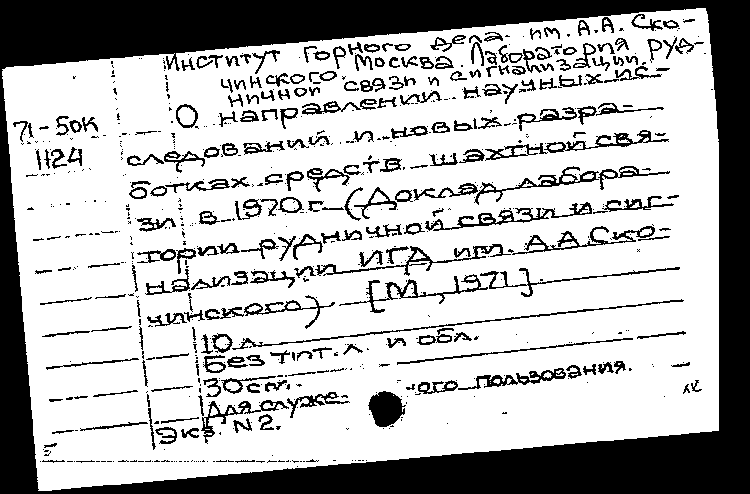 Институт Горного дела им. А.А. Ско-
чинского. Москва. Лаборатория руд-
ничной связи и сигнализации.
71-50К
О направлении научных ис-
1124
следований и новых разра-
ботках средств шахтной свя-
зи в 1970 г. (Доклад лабора-
тории рудничной связи и сиг-
нализации ИГД им. А.А. Ско-
чинского). [М., 1971].
10 л.
Без тит. л. и обл.
30 см.
Для служе- ного пользования.
Экз. N 2.